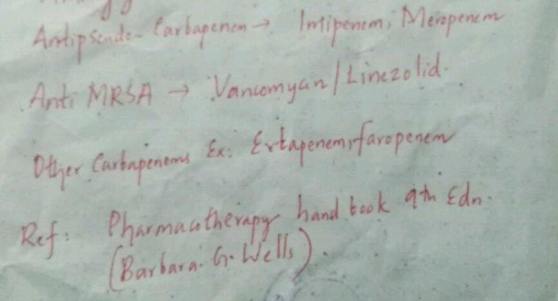 Antipseudo- Carbapenem → Imipenem, Meropenem
Anti MRSA → Vancomycin / Linezolid.
Other Carbapenems Ex: Ertapenem, faropenem
Ref: Pharmacotherapy hand book 9th Edn.
(Barbara. G. Wells).